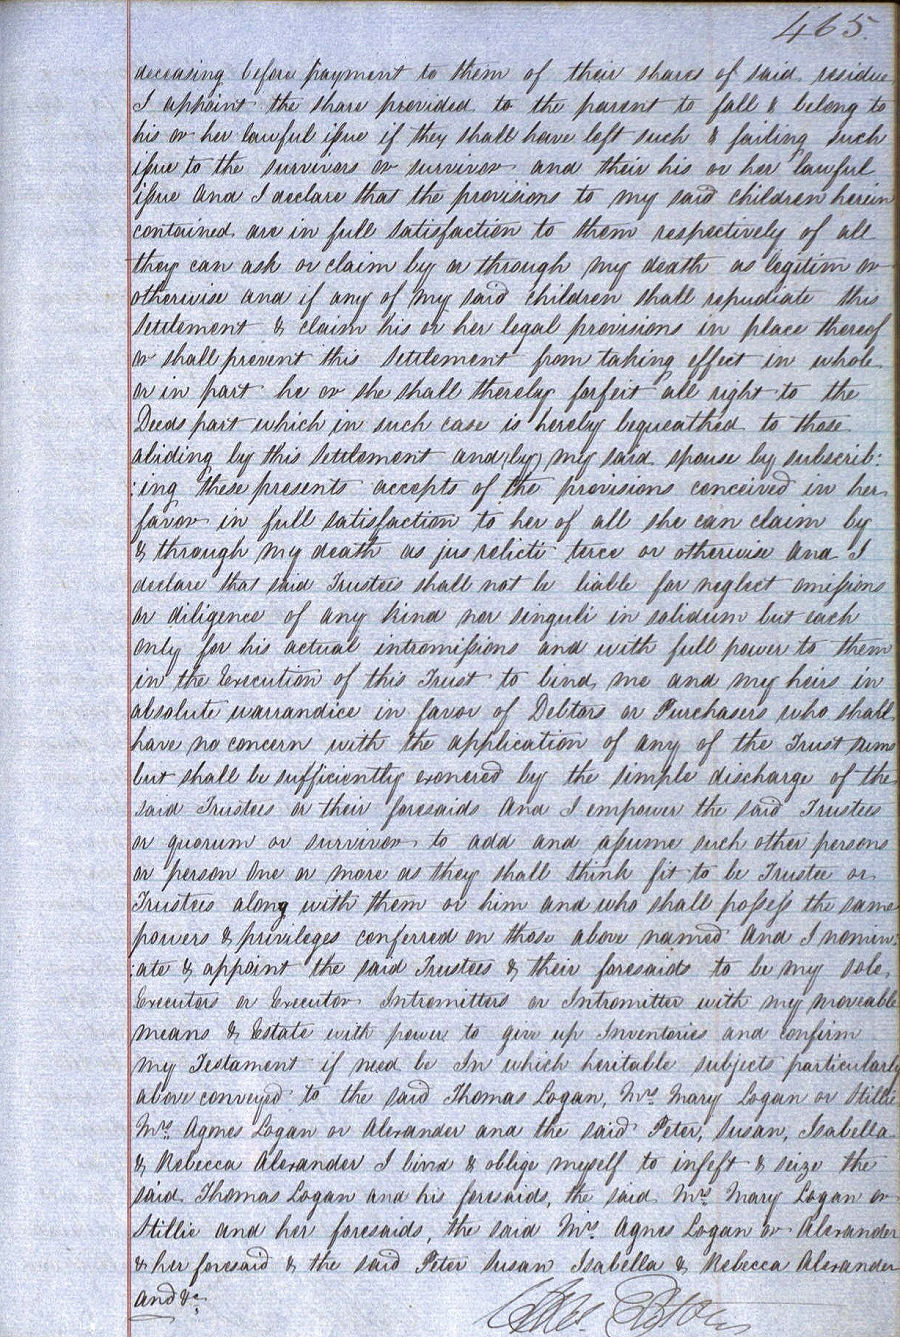 465.
deceasing before payment to them of their shares of said residue
I appoint the share provided to the parent to fall & belong to
his or her lawful issue if they shall have left such & failing such
issue to the survivors or survivor and their his or her lawful
issue And I declare that the provisions to my said children herein
contained are in full satisfaction to them respectively of all
they can ask or claim by or through my death as legitim or
otherwise and if any of my said children shall repudiate this
Settlement & claim his or her legal provisions in place thereof
or shall prevent this Settlement from taking effect in whole
or in part he or she shall thereby forfeit all right to the
Deeds part which in such case is hereby bequeathed to those
abiding by this Settlement and (by) my said spouse by subscrib:
:ing these presents accepts of the provisions conceived in her
favor in full satisfaction to her of all she can claim by
& through my death as jus relicti terce or otherwise And I
declare that said Trustees shall not be liable for neglect omissions
or diligence of any kind nor singuli in solidum but each
only for his actual intromissions and with full power to them
in the Execution of this Trust to bind me and my heirs in
absolute warrandice in favor of Debtors or Purchasers who shall
have no concern with the application of any of the Trust sums
but shall be sufficiently exonered by the simple discharge of the
said Trustees or their foresaids And I empower the said Trustees
or quorum or survivor to add and assume such other persons
or person One or more as they shall think fit to be Trustee or
Trustees along with them or him and who shall possess the same
powers & privileges conferred on those above named And I nomin:
:ate & appoint the said Trustees & their foresaids to be my sole
Executors or Executor Intromitters or Intromitter with my moveable
means & Estate with power to give up Inventories and confirm
my Testament if need be In which heritable subjects particularly
above conveyed to the said Thomas Logan, Mrs Mary Logan or Stillie
Mrs Agnes Logan or Alexander and the said Peter, Susan, Isabella
& Rebecca Alexander I bind & oblige myself to infeft & seize the
said Thomas Logan and his foresaids, the said Mrs Mary Logan or
Stillie and her foresaids, the said Mrs Agnes Logan or Alexander
& her foresaid & the said Peter Susan Isabella & Rebecca Alexander
and &c